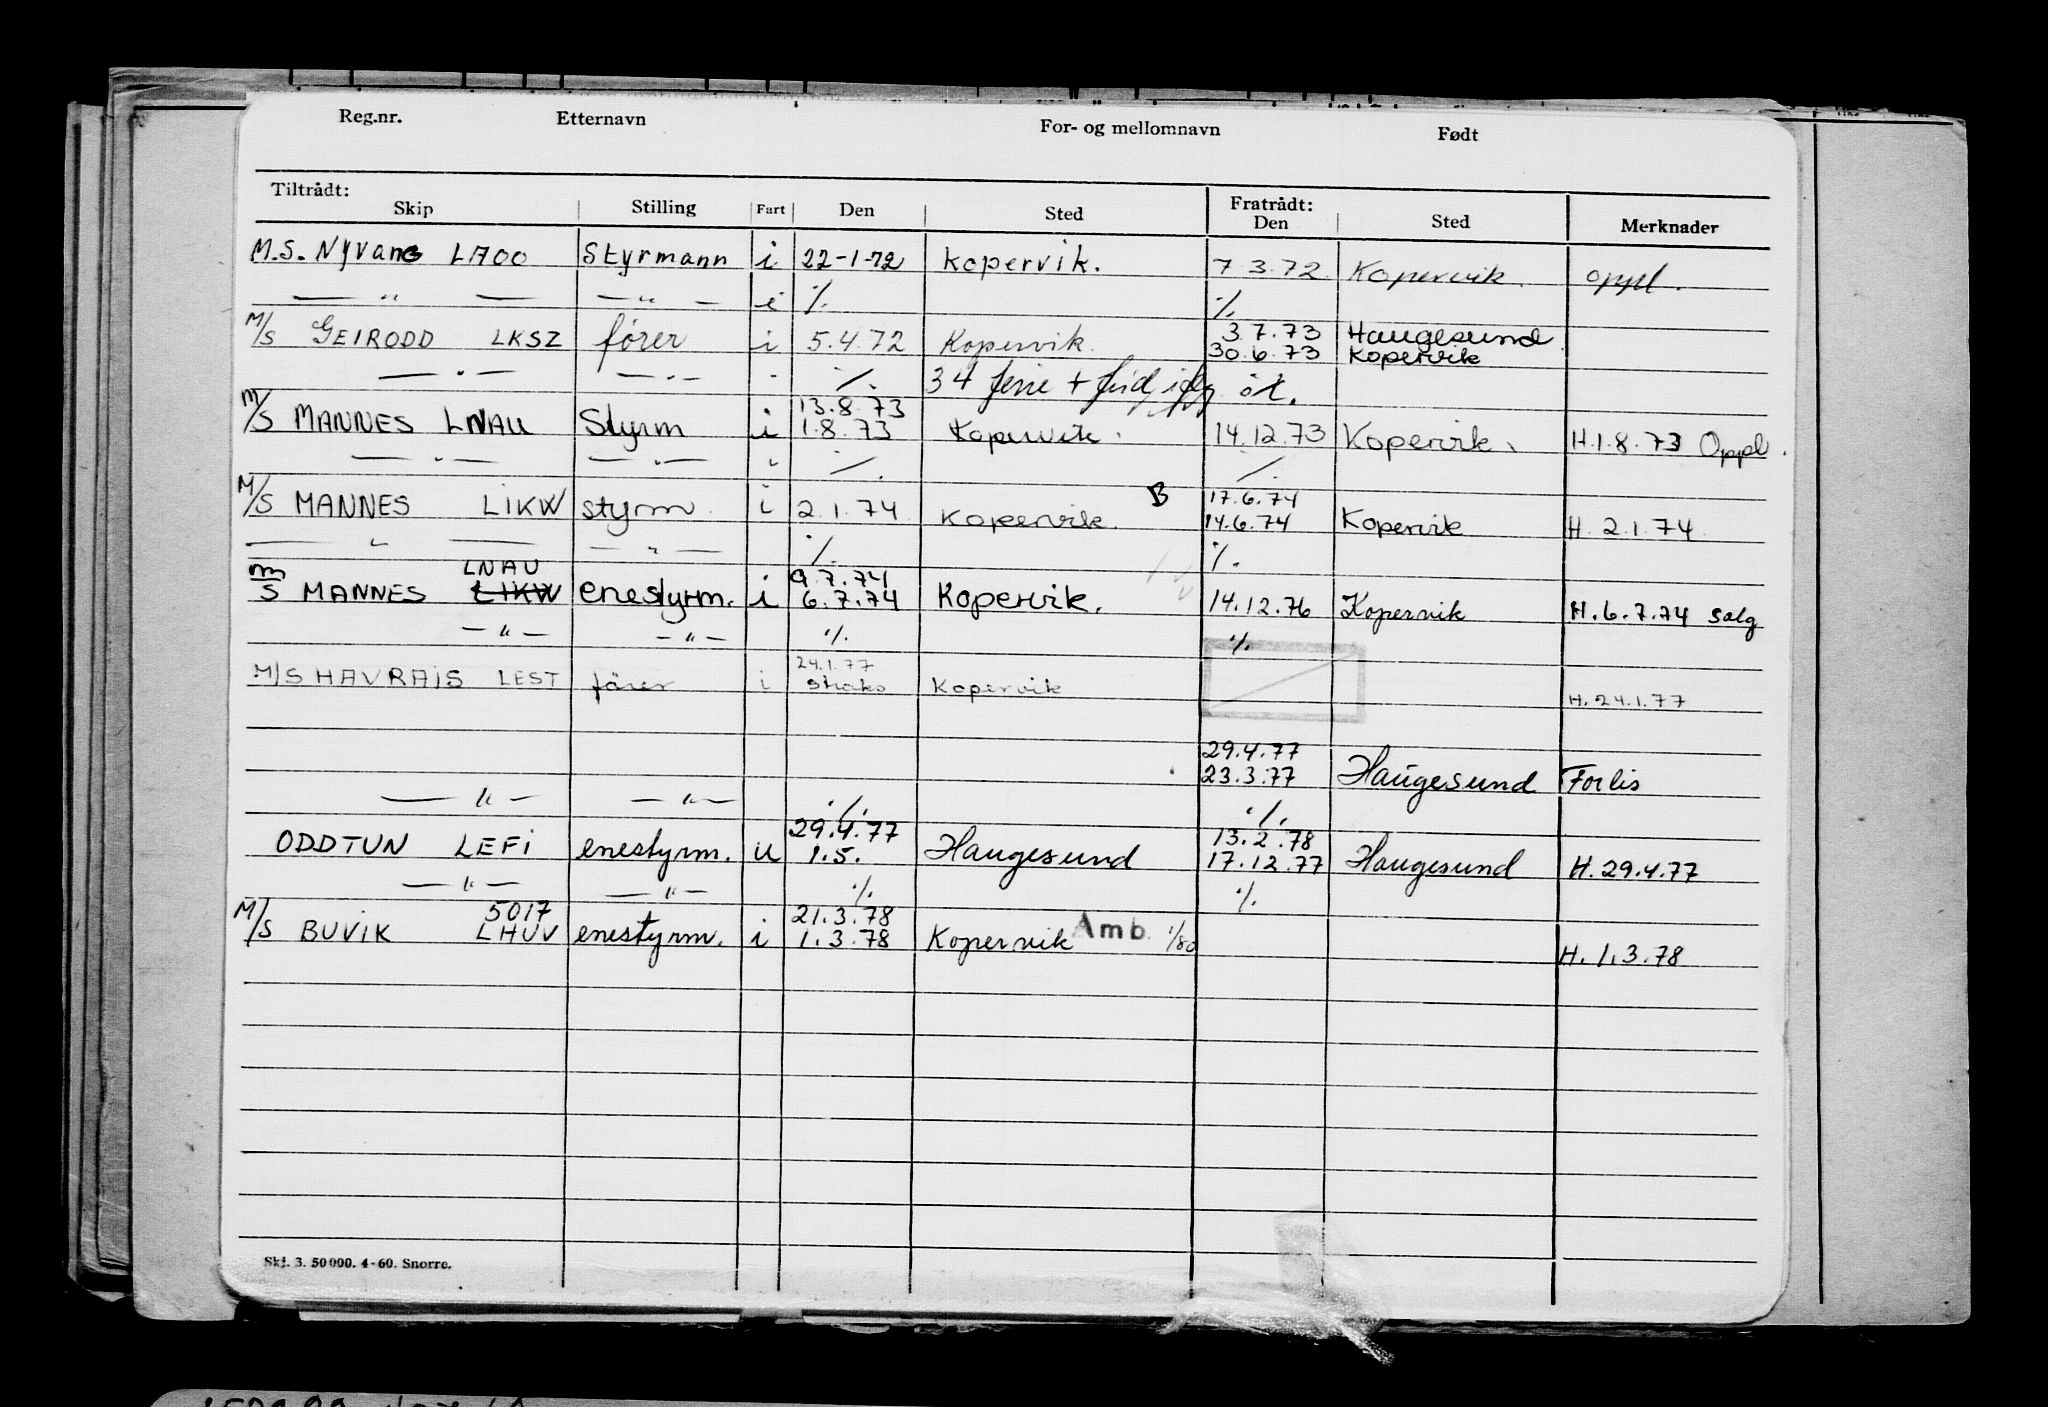 Reg.nr. Etternavn For- og mellomnavn Født
Tiltrådt: Fratrådt:
Skip Stilling Fart Den Sted Den Sted Merknader
M.S. Nyvang LAOO Styrmann i 22-1-72 Kopervik. 7 3.72 Kopervik. oppl.
— " — — " — i ./. ./.
3.7.73 Haugesund
M/S GEIRODD LKSZ fører i 5.4.72 Kopervik. 30.6.73 Kopervik
— " — — " — " ./. 34 ferie + frid,
13.8.73
M/S MANNES LNAU Styrm i 1.8.73 Kopervik. 14.12.73 Kopervik. H.1.8.73 Oppl.
— " — — " — " ./. ./.
B 17.6.74
M/S MANNES LIKW styrm. i 2.1.74 Kopervik. 14.6.74 Kopervik H. 2.1.74
— " — — " — ./. ./.
LNAU 9.7.74
M/S MANNES LIKW enestyrm. i 6.7.74 Kopervik. 14.12.76 Kopervik H.6.7.74 salg
— " — — " — ./. ./.
24.1.77
M/S HAVRAIS LEST fører i straks Kopervik H.24.1.77
29.4.77
23.3.77 Haugesund Forlis
— " — — " — ./. ./.
29.4.77 13.2.78
ODDTUN LEFI enestyrm. u 1.5. Haugesund 17.12.77 Haugesund H.29.4.77
— " — — " — ./. ./.
5017 21.3.78
M/S BUVIK LHUV enestyrm. i 1.3.78 Kopervik Amb. 1/80 H. 1.3.78
Skj. 3. 50 000. 4-60. Snorre.